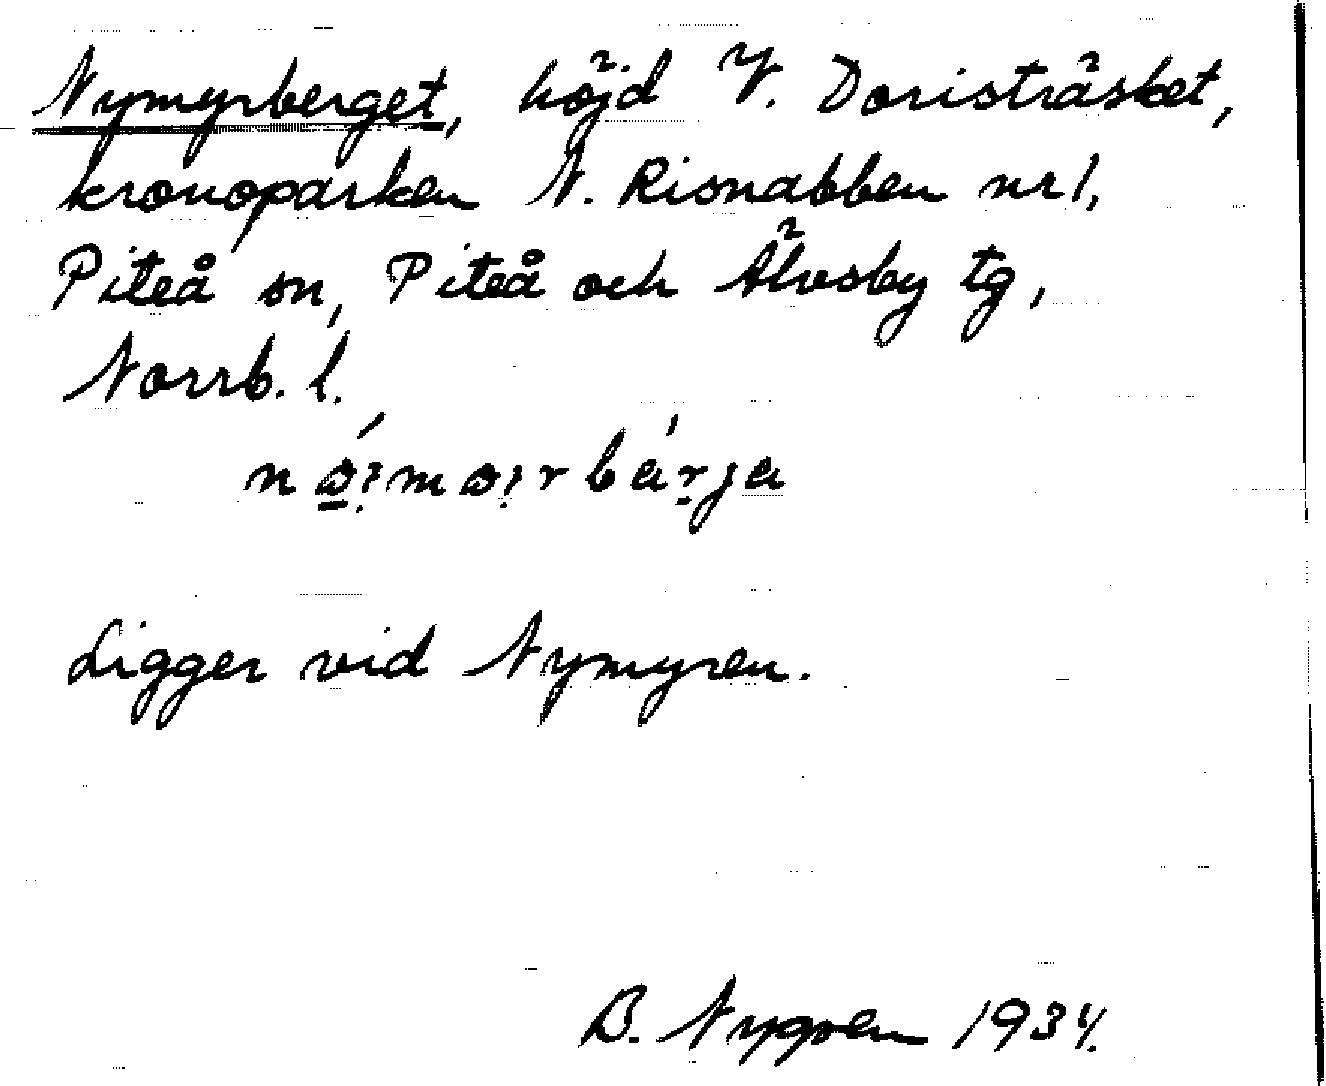 Nymyrberget, höjd V. Doristräsket,
kronoparken N. Risnabben nr 1,
Piteå sn, Piteå och Älvsby tg,
Norrb. l.
Ligger vid Nymyren.
B. Nygren 1934.